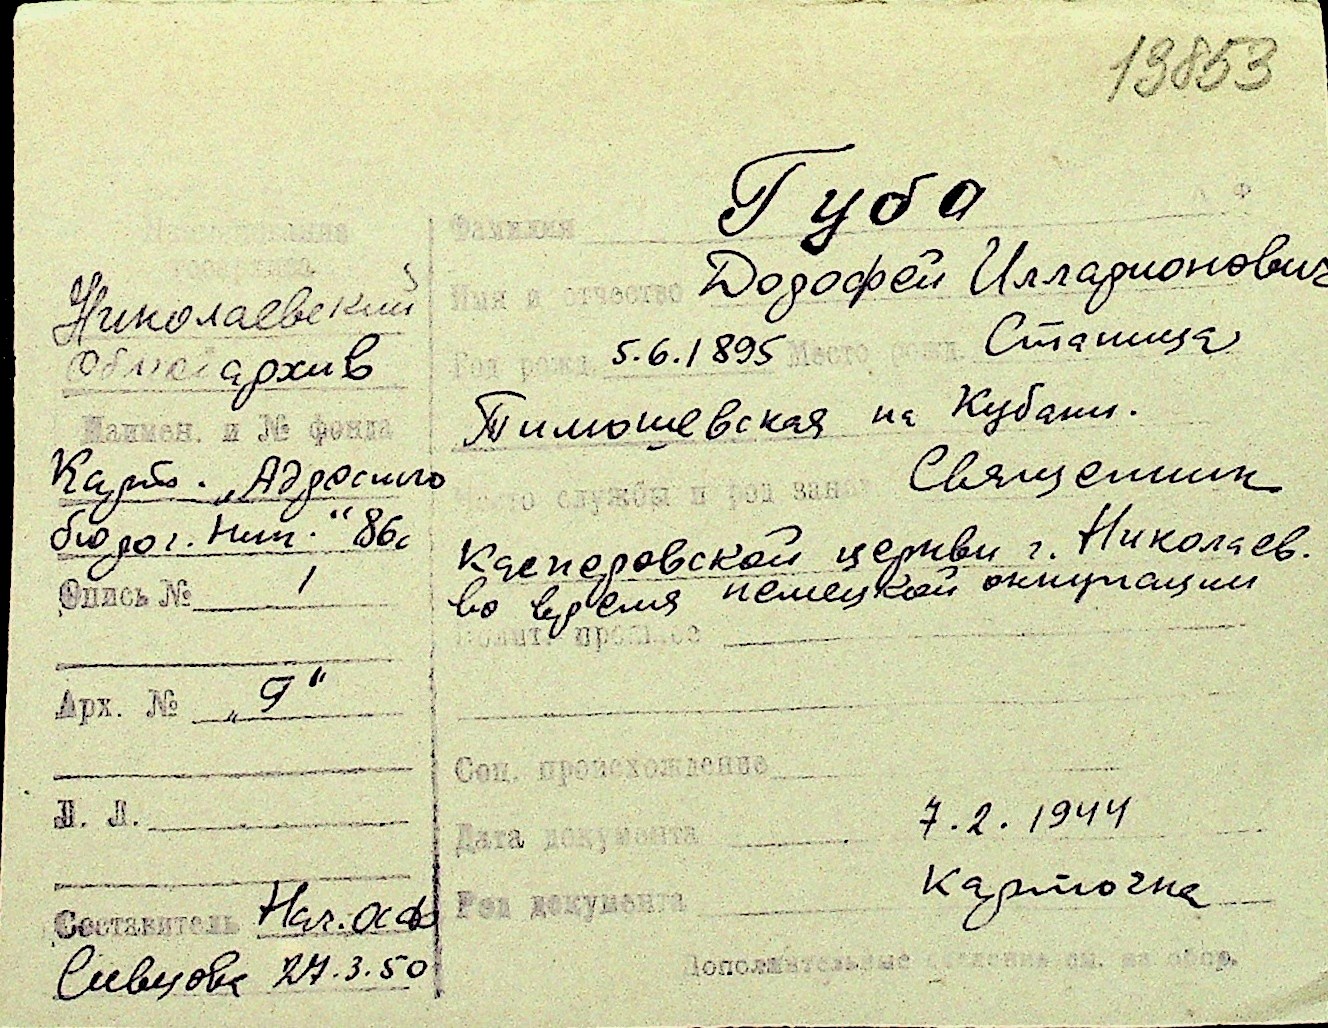 13853
Губа
Фамилия
Имя и отчество Додофей Илларионович
Год рожд. 5.6.1895 Место рожд. Станица
Тимошевская на Кубани.
Место службы и род занят. Священник
Касперовской церкви г. Николаев.
во время немецкой оккупации
Полит. прошлое
Соц. происхождение
Дата документа 7.2.1944
Род документа карточка
Дополнительные сведения см. на обор.
Николаевский
архив
Наимен. и № фонда
Карт. "Адресного
бюро г. Ник." 86с
Опись № 1
Арх. № "Г"
Л. Л.
Составитель Нач. ОСФ
Сивцова 27.3.50